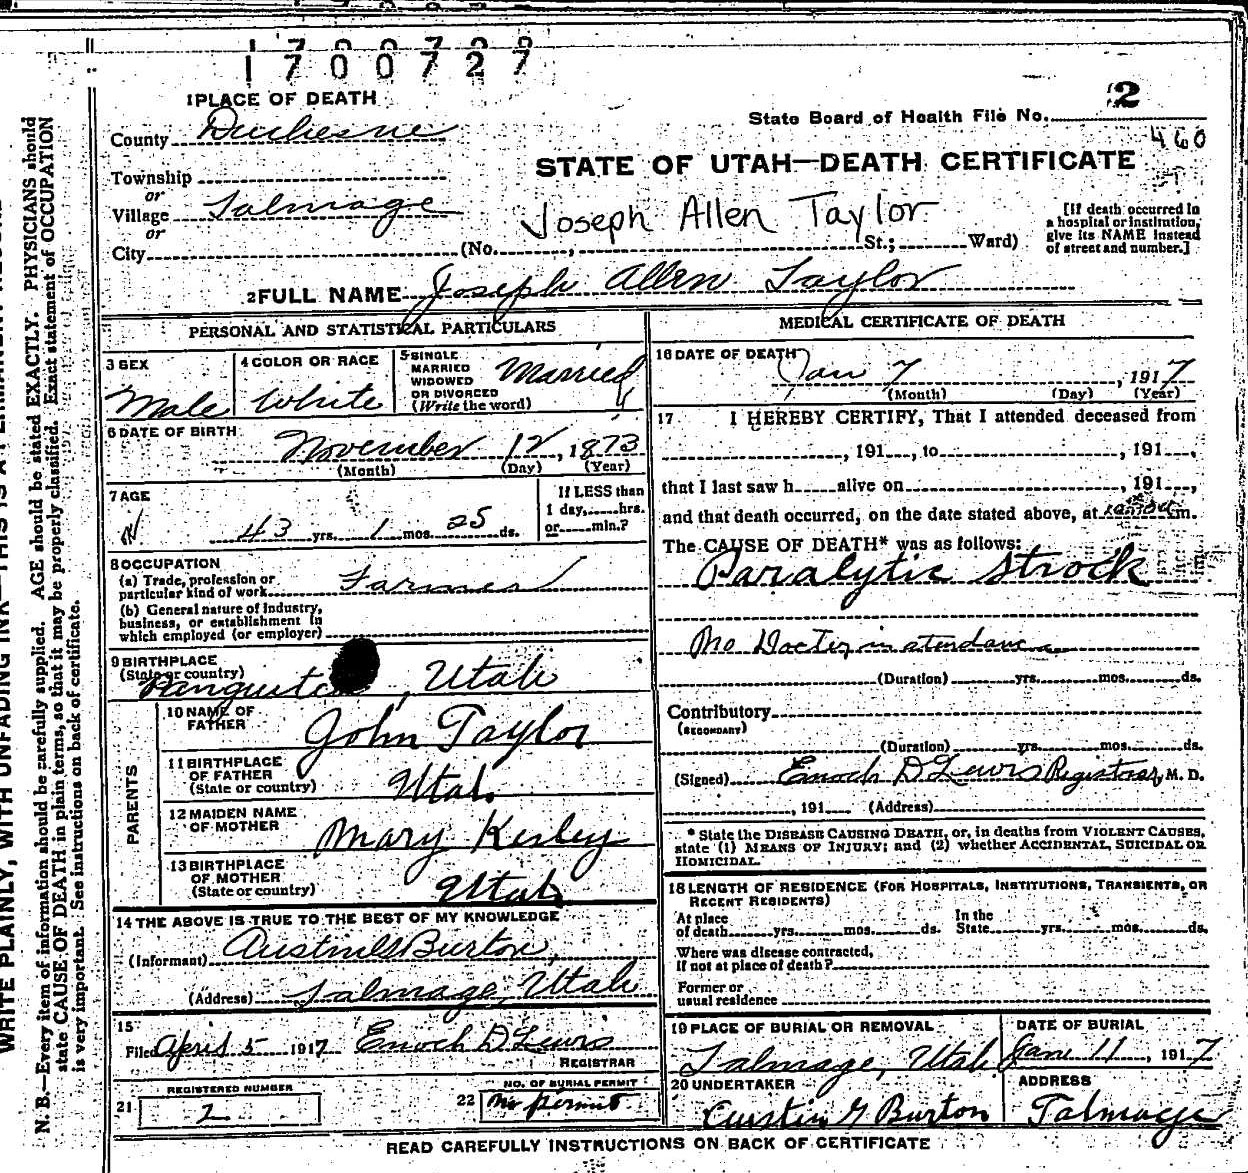 1700727
1 PLACE OF DEATH
County Duchesne
State Board of Health File No. 2
460
STATE OF UTAH—DEATH CERTIFICATE
Township
or
Village Talmage
or
City (No. St.; Ward)
Joseph Allen Taylor
[If death occurred in
a hospital or institution,
give its NAME instead
of street and number.]
2 FULL NAME Joseph Allen Taylor
PERSONAL AND STATISTICAL PARTICULARS
3 SEX
Male
4 COLOR OR RACE
White
5 SINGLE
MARRIED
WIDOWED
OR DIVORCED
(Write the word)
Married
6 DATE OF BIRTH
November 12, 1873
(Month) (Day) (Year)
7 AGE
43 yrs. 1 mos. 25 ds.
If LESS than
1 day, hrs.
or min.?
8 OCCUPATION
(a) Trade, profession or
particular kind of work Farmer
(b) General nature of Industry,
business, or establishment in
which employed (or employer)
9 BIRTHPLACE
(State or country)
, Utah
PARENTS
10 NAME OF
FATHER
John Taylor
11 BIRTHPLACE
OF FATHER
(State or country)
Utah.
12 MAIDEN NAME
OF MOTHER
Mary Kesley
13 BIRTHPLACE
OF MOTHER
(State or country)
Utah
14 THE ABOVE IS TRUE TO THE BEST OF MY KNOWLEDGE
(Informant) Burton,
(Address) Talmage, Utah
15
Filed April 5 1917 Enoch D Lewis
REGISTRAR
21 REGISTERED NUMBER
2
22 NO. OF BURIAL PERMIT
No permit
MEDICAL CERTIFICATE OF DEATH
16 DATE OF DEATH
Jan 7, 1917
(Month) (Day) (Year)
17 I HEREBY CERTIFY, That I attended deceased from
, 191 , to , 191 ,
that I last saw h alive on , 191 ,
and that death occurred, on the date stated above, at m.
The CAUSE OF DEATH* was as follows:
Paralytic Strock
No Docter in attendance
(Duration) yrs. mos. ds.
Contributory
(SECONDARY)
(Duration) yrs. mos. ds.
(Signed) Enoch D Lewis Registrar M. D.
, 191 (Address)
* State the DISEASE CAUSING DEATH, or, in deaths from VIOLENT CAUSES,
state (1) MEANS OF INJURY; and (2) whether ACCIDENTAL, SUICIDAL OR
HOMICIDAL.
18 LENGTH OF RESIDENCE (FOR HOSPITALS, INSTITUTIONS, TRANSIENTS, OR
RECENT RESIDENTS)
At place
of death yrs. mos. ds.
In the
State yrs. mos. ds.
Where was disease contracted,
If not at place of death?
Former or
usual residence
19 PLACE OF BURIAL OR REMOVAL
Talmage, Utah
DATE OF BURIAL
Jan 11, 1917
20 UNDERTAKER
Austin G Burton
ADDRESS
Talmage
READ CAREFULLY INSTRUCTIONS ON BACK OF CERTIFICATE
WRITE PLAINLY, WITH UNFADING INK—THIS IS A PERMANENT RECORD
N. B.—Every item of information should be carefully supplied. AGE should be stated EXACTLY. PHYSICIANS should
state CAUSE OF DEATH in plain terms, so that it may be properly classified. Exact statement of OCCUPATION
is very important. See instructions on back of certificate.